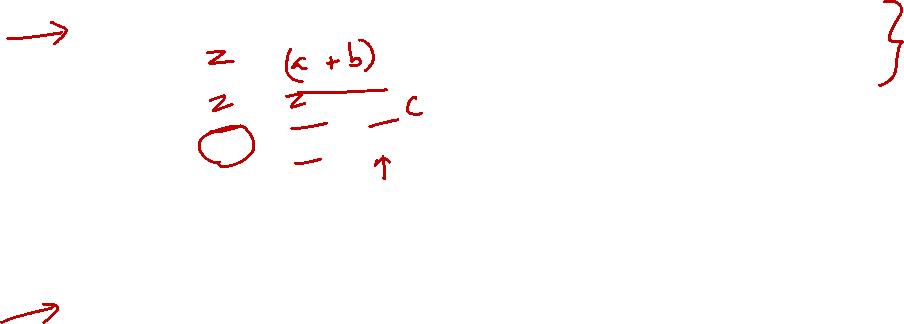 → }
z (a + b)
z z c
→